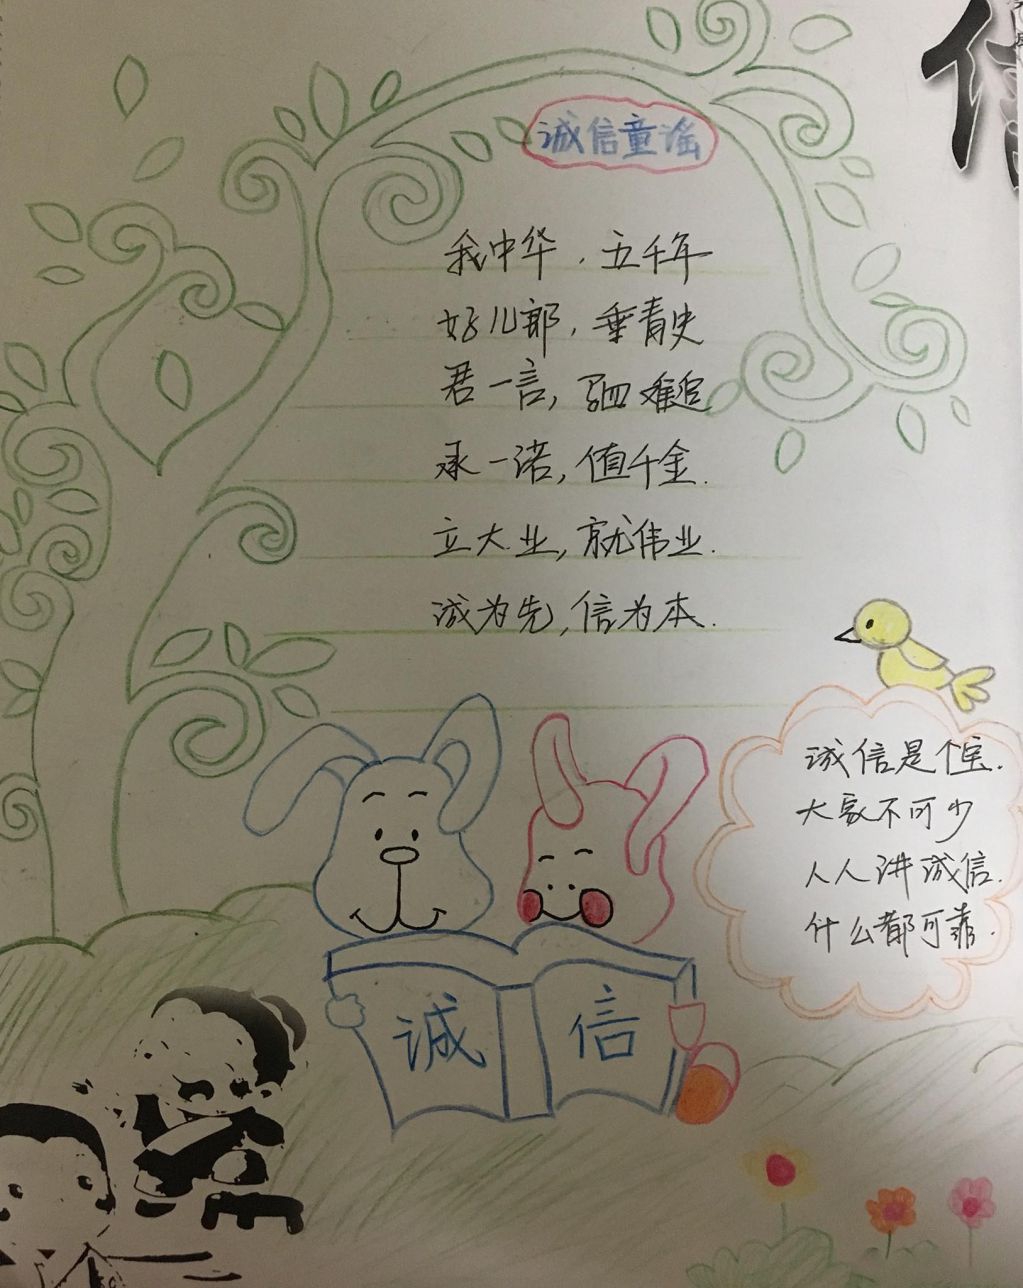 信
诚信童谣
我中华，五千年
好儿郎，垂青史
君一言，驷难追
承一诺，值千金.
立大业，就伟业.
诚为先，信为本.
诚信是个宝.
大家不可少
人人讲诚信.
什么都可靠.
诚 信